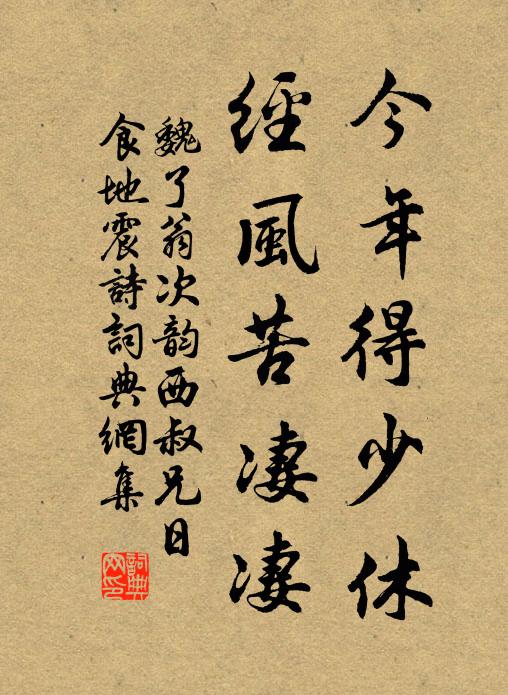 今年得少休
經風苦凄凄
魏了翁次韵西叔兄日
食地震詩詞典網集
詞典網印